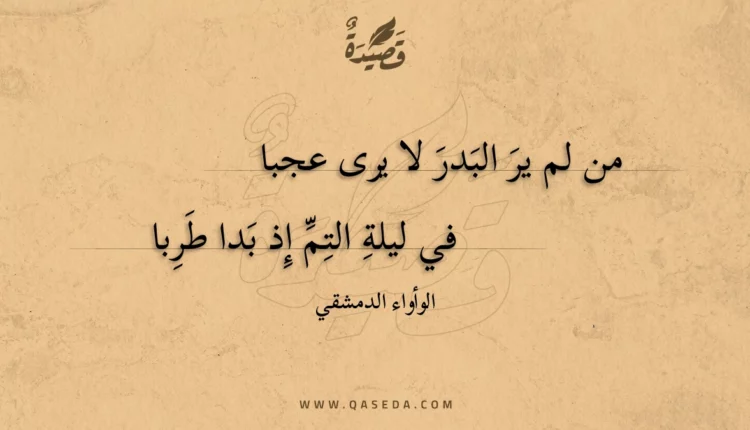 قَصِيْدَةٌ
من لم يرَ البَدرَ لا يرى عجبا
في ليلةِ التِمِّ إِذ بَدا طَرِبا
الوأواء الدمشقي
WWW.QASEDA.COM